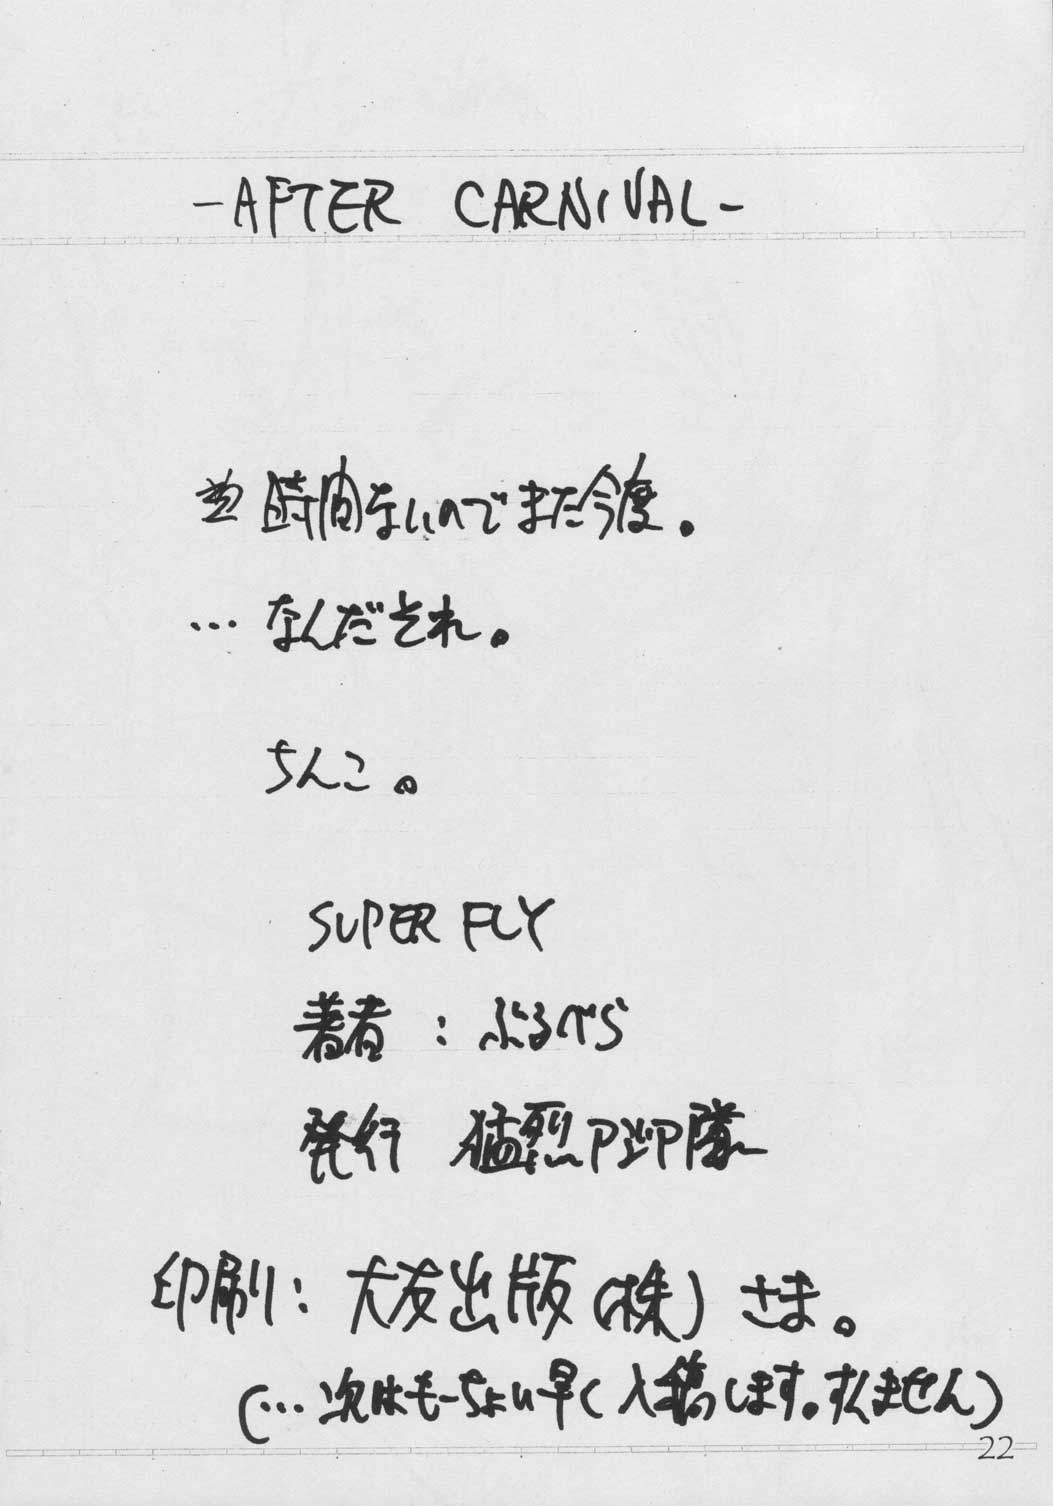 -AFTER CARNIVAL-
時間ないのでまた今度。
…なんだそれ。
ちんこ。
SUPER FLY
著者：ぶるべら
発行 猛烈アジア隊
印刷：大友出版（株）さま。
(…次はもーちょい早く入稿します。すんません)
22